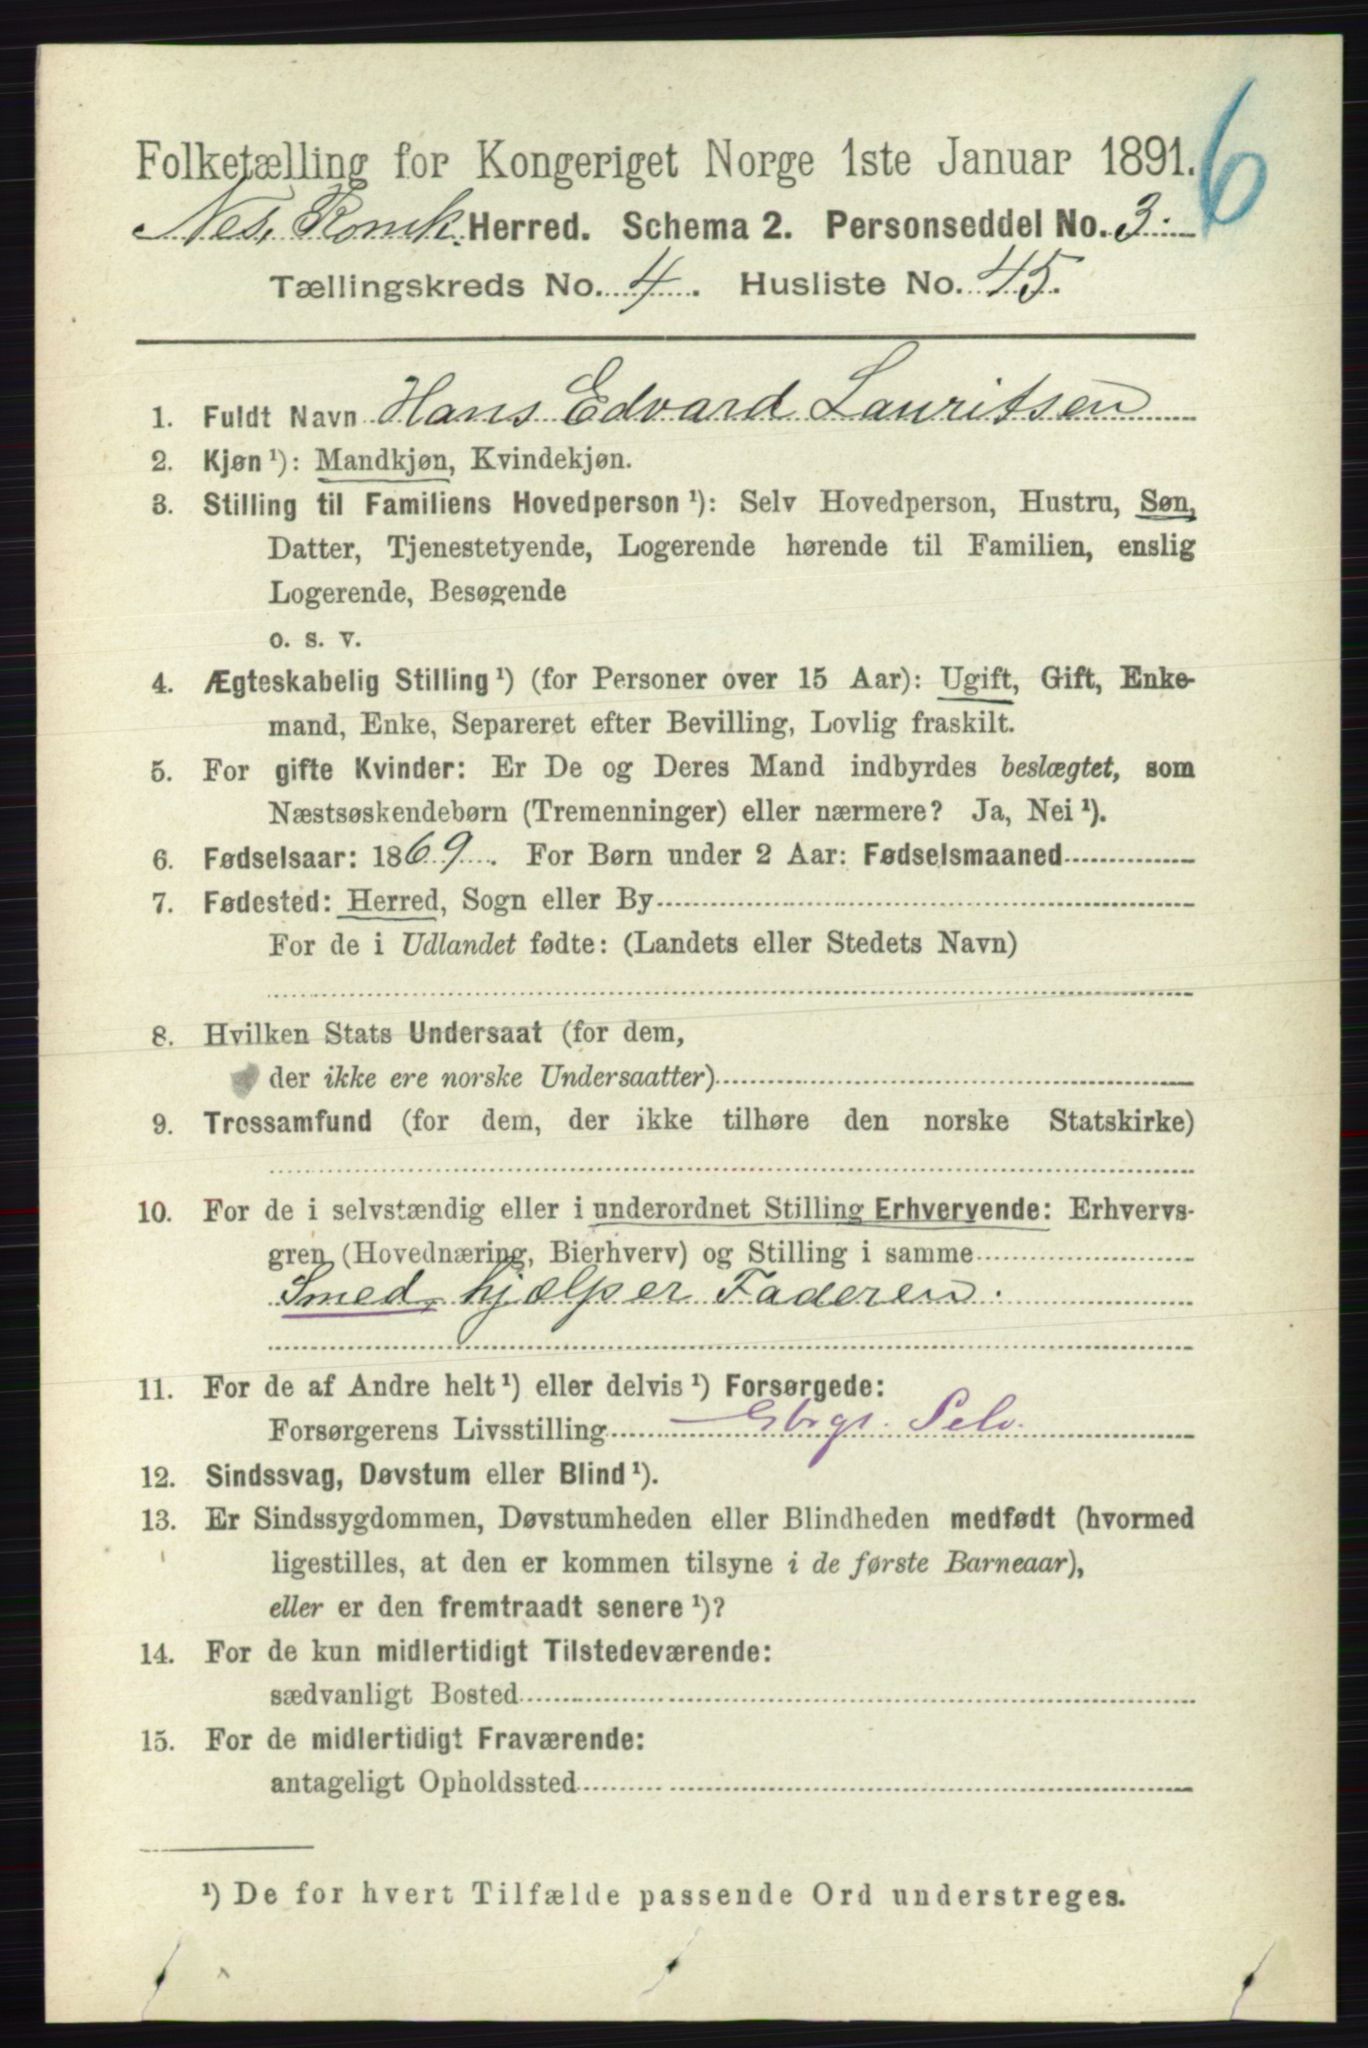 6
Folketælling for Kongeriget Norge 1ste Januar 1891.
Nes, Romk. Herred. Schema 2. Personseddel No. 3.
Tællingskreds No. 4. Husliste No. 45.
1. Fuldt Navn Hans Edvard Lauritsen
2. Kjøn ¹): Mandkjøn, Kvindekjøn.
3. Stilling til Familiens Hovedperson ¹): Selv Hovedperson, Hustru, Søn,
Datter, Tjenestetyende, Logerende hørende til Familien, enslig
Logerende, Besøgende
o. s. v.
4. Ægteskabelig Stilling ¹) (for Personer over 15 Aar): Ugift, Gift, Enke-
mand, Enke, Separeret efter Bevilling, Lovlig fraskilt.
5. For gifte Kvinder: Er De og Deres Mand indbyrdes beslægtet, som
Næstsøskendebørn (Tremenninger) eller nærmere? Ja, Nei ¹).
6. Fødselsaar: 1869. For Børn under 2 Aar: Fødselsmaaned
7. Fødested: Herred, Sogn eller By
For de i Udlandet fødte: (Landets eller Stedets Navn)
8. Hvilken Stats Undersaat (for dem,
der ikke ere norske Undersaatter)
9. Trossamfund (for dem, der ikke tilhøre den norske Statskirke)
10. For de i selvstændig eller i underordnet Stilling Erhvervende: Erhvervs-
gren (Hovednæring, Bierhverv) og Stilling i samme
Smed, hjælper Faderen.
11. For de af Andre helt ¹) eller delvis ¹) Forsørgede:
Forsørgerens Livsstilling Selv.
12. Sindssvag, Døvstum eller Blind ¹).
13. Er Sindssygdommen, Døvstumheden eller Blindheden medfødt (hvormed
ligestilles, at den er kommen tilsyne i de første Barneaar),
eller er den fremtraadt senere ¹)?
14. For de kun midlertidigt Tilstedeværende:
sædvanligt Bosted
15. For de midlertidigt Fraværende:
antageligt Opholdssted
¹) De for hvert Tilfælde passende Ord understreges.